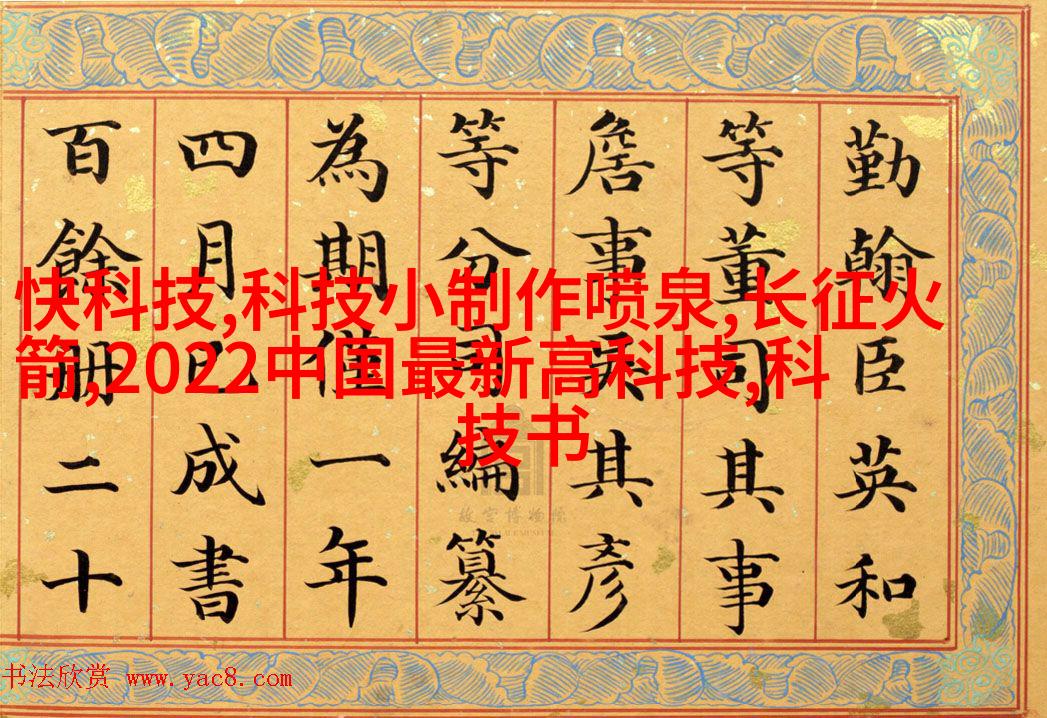 勤翰臣英和
等董司其事
詹事吳其彥
等分司編纂
為期僅一年
四月已成書
百餘冊二十
快科技,科技小制作喷泉,长征火
箭,2022中国最新高科技,科
技书
故宫博物院
书法欣赏 www.yac8.com